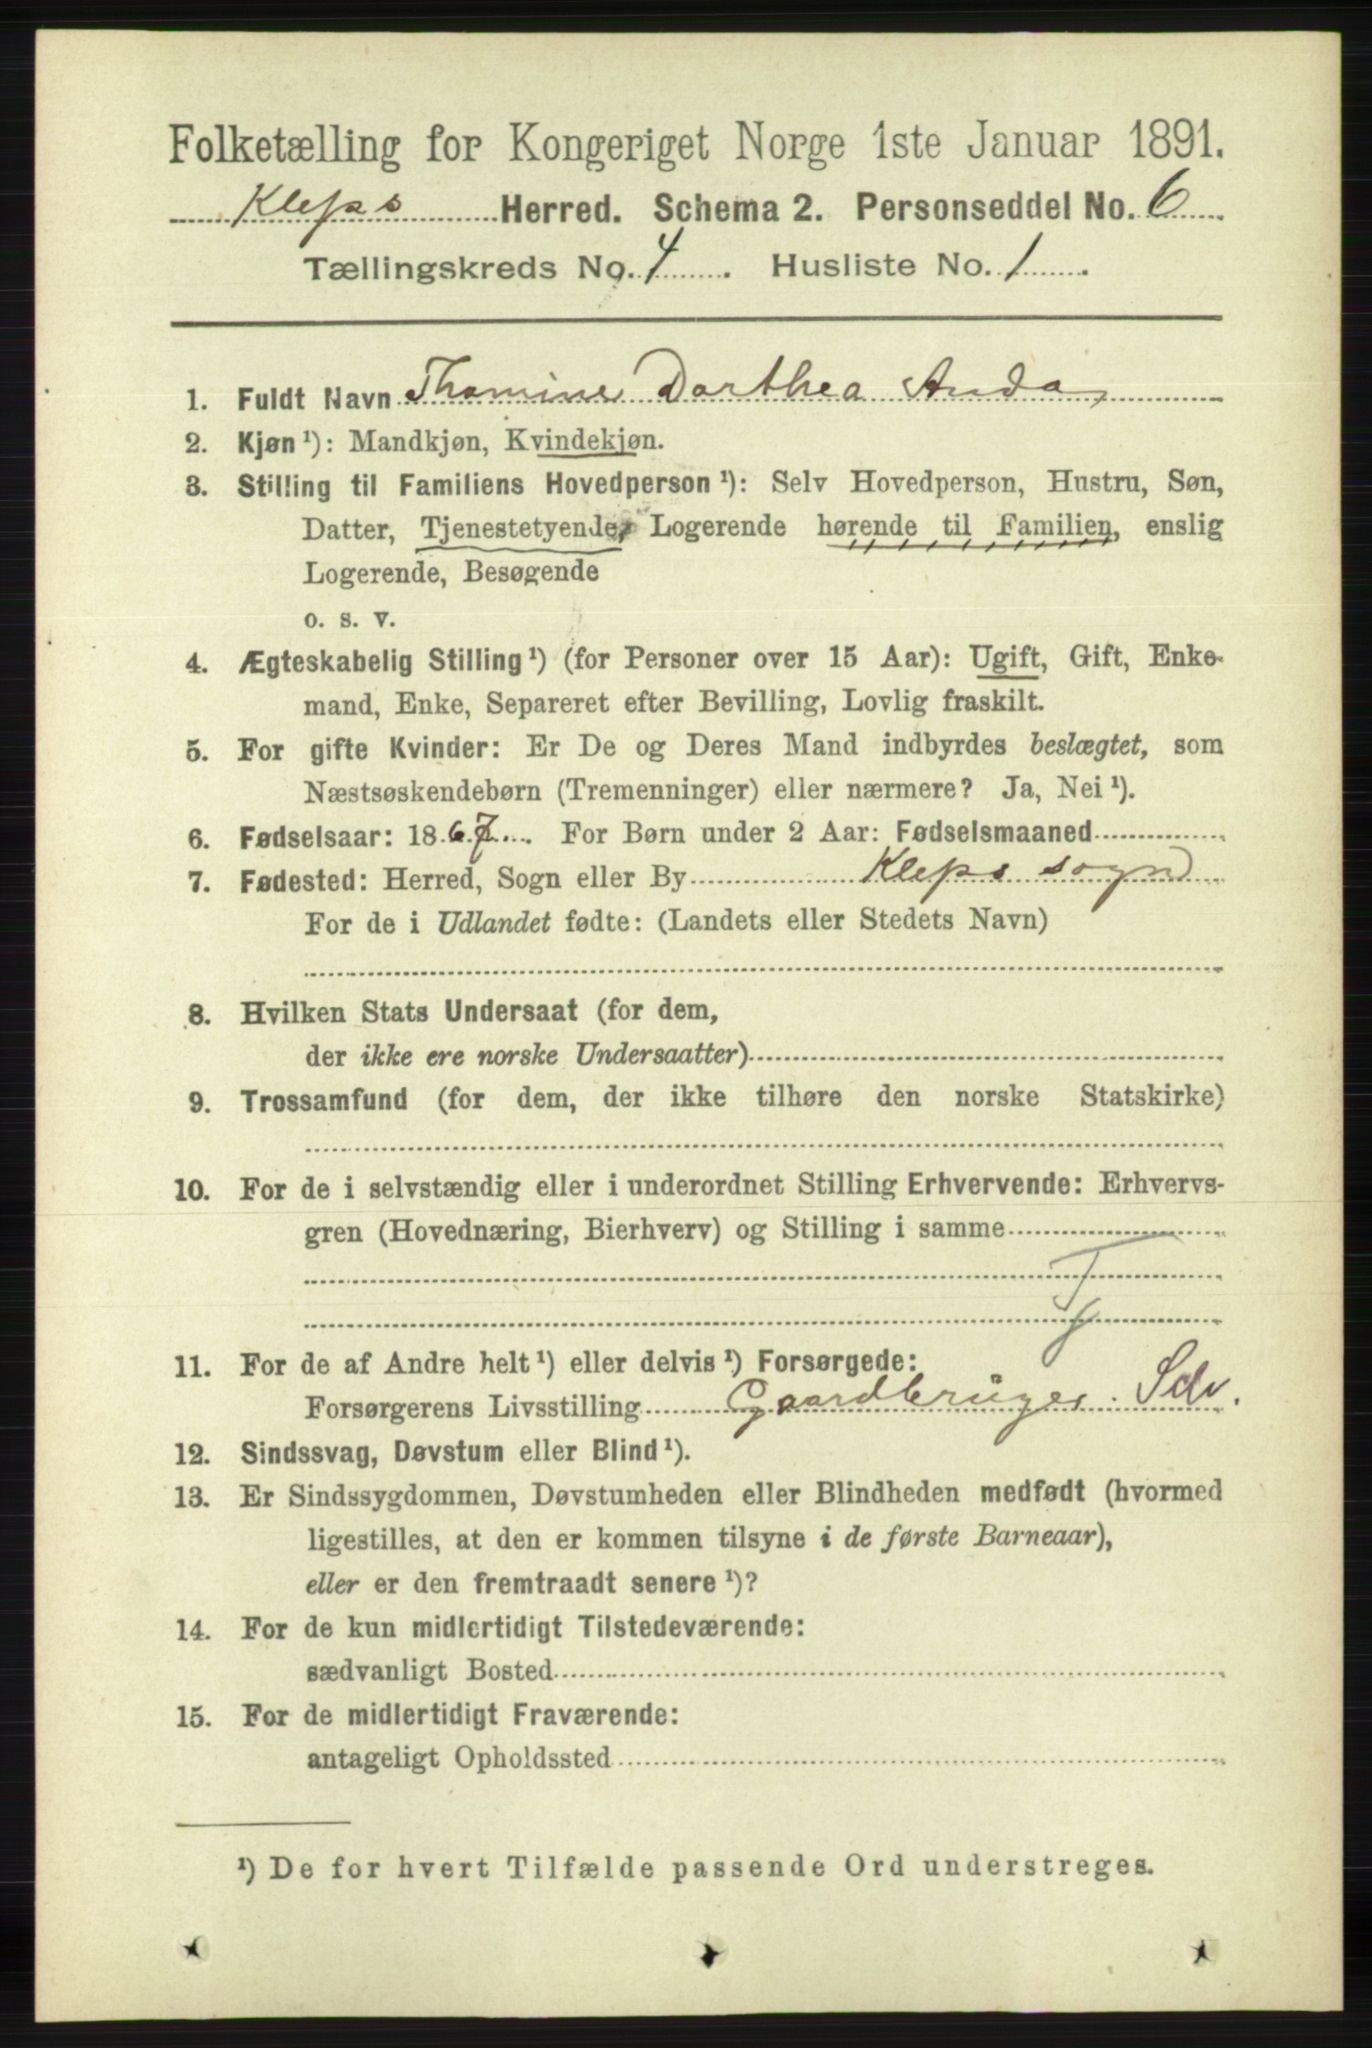 Folketælling for Kongeriget Norge 1ste Januar 1891.
Kleps Herred. Schema 2. Personseddel No. 6
Tællingskreds No. 4. Husliste No. 1.
1. Fuldt Navn Thomine Dorthea Anda,
2. Kjøn ¹): Mandkjøn, Kvindekjøn.
3. Stilling til Familiens Hovedperson ¹): Selv Hovedperson, Hustru, Søn,
Datter, Tjenestetyende, Logerende hørende til Familien, enslig
Logerende, Besøgende
o. s. v.
4. Ægteskabelig Stilling ¹) (for Personer over 15 Aar): Ugift, Gift, Enke-
mand, Enke, Separeret efter Bevilling, Lovlig fraskilt.
5. For gifte Kvinder: Er De og Deres Mand indbyrdes beslægtet, som
Næstsøskendebørn (Tremenninger) eller nærmere? Ja, Nei ¹).
6. Fødselsaar: 1867. For Børn under 2 Aar: Fødselsmaaned
7. Fødested: Herred, Sogn eller By Kleps sogn
For de i Udlandet fødte: (Landets eller Stedets Navn)
8. Hvilken Stats Undersaat (for dem,
der ikke ere norske Undersaatter)
9. Trossamfund (for dem, der ikke tilhøre den norske Statskirke)
10. For de i selvstændig eller i underordnet Stilling Erhvervende: Erhvervs-
gren (Hovednæring, Bierhverv) og Stilling i samme
11. For de af Andre helt ¹) eller delvis ¹) Forsørgede:
Forsørgerens Livsstilling Gaardbruger. Selv.
12. Sindssvag, Døvstum eller Blind ¹).
13. Er Sindssygdommen, Døvstumheden eller Blindheden medfødt (hvormed
ligestilles, at den er kommen tilsyne i de første Barneaar),
eller er den fremtraadt senere ¹)?
14. For de kun midlertidigt Tilstedeværende:
sædvanligt Bosted
15. For de midlertidigt Fraværende:
antageligt Opholdssted
¹) De for hvert Tilfælde passende Ord understreges.